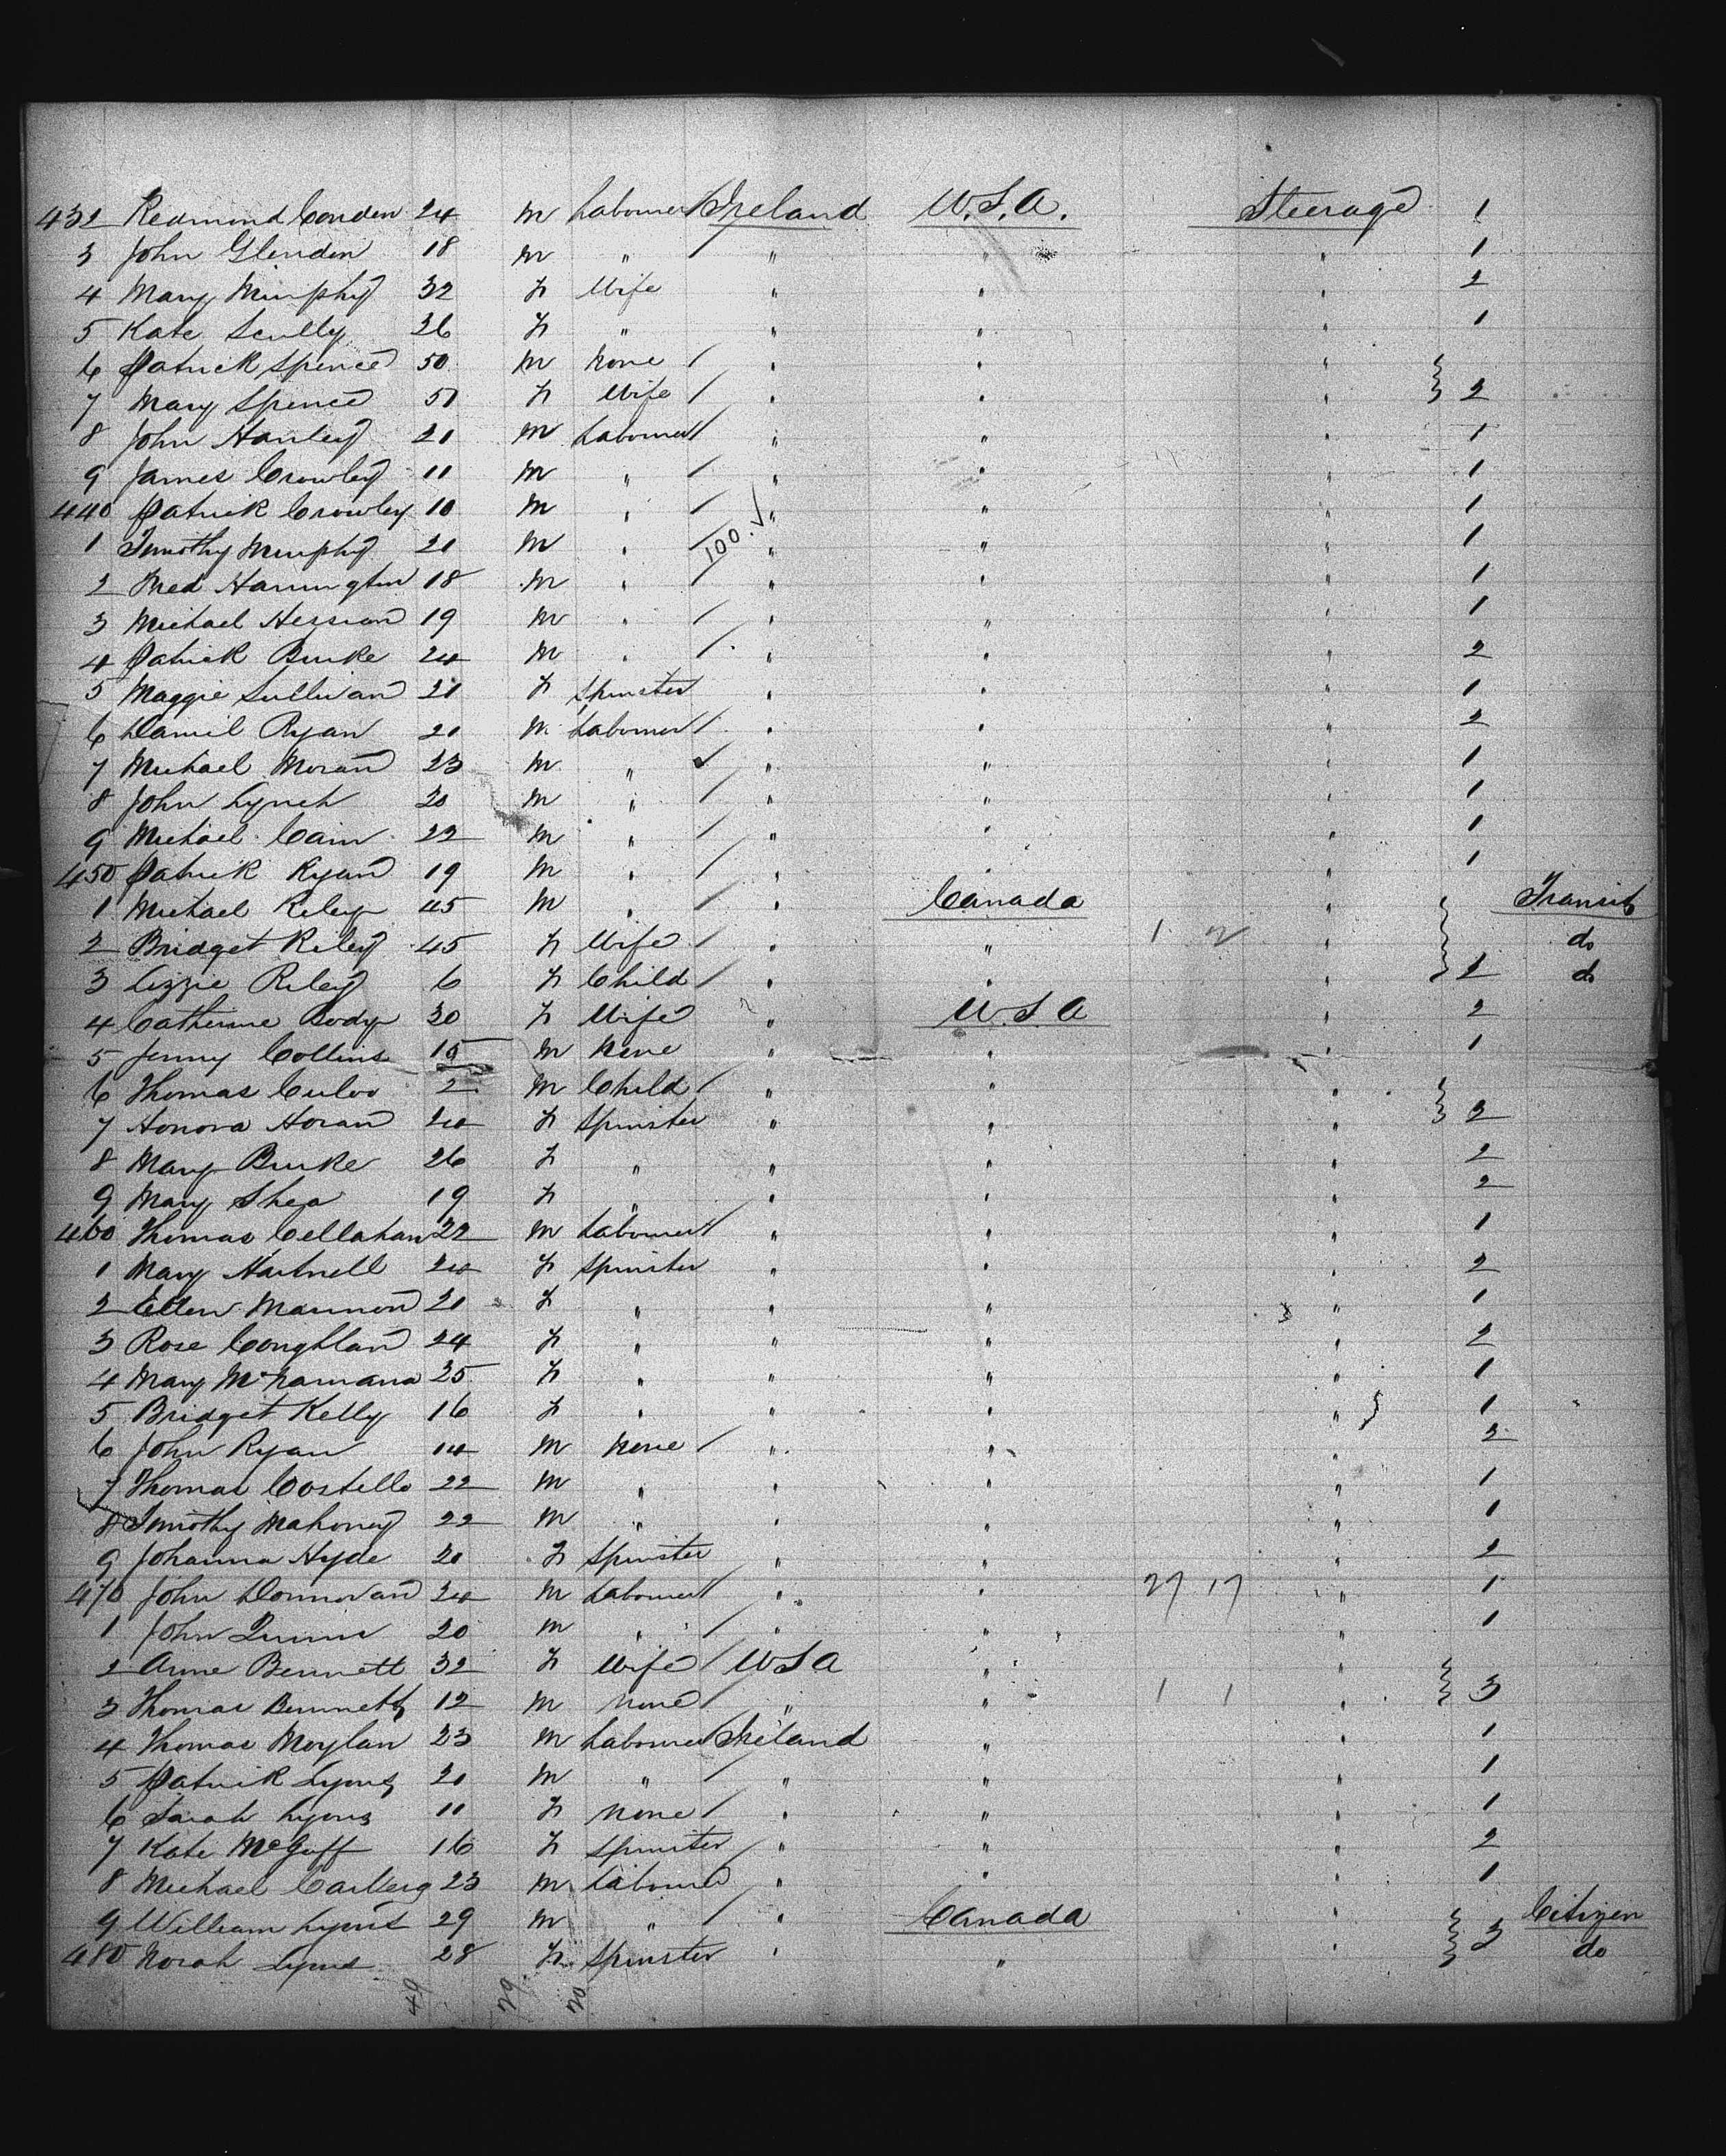 432 Redmond Conden 24 M Labourer Ireland U.S.A. Steerage 1
3 John Glendon 18 M " " " " 1
4 Mary Murphy 32 F Wife " " " 2
5 Kate Scully 36 F " " " " 1
6 Patrick Spence 50 M None " " "
7 Mary Spence 51 F Wife " " " 2
8 John Hanley 21 M Labourer " " " 1
9 James Crowley 11 M " " " " 1
440 Patrick Crowley 10 M " " " " 1
1 Timothy Murphy 21 M " 100. ✓ " " " 1
2 Harrington 18 M " " " " 1
3 Michael Hession 19 M " " " " 1
4 Patrick Burke 24 M " " " " 2
5 Maggie Sullivan 21 F Spinster " " " 1
6 Daniel Ryan 21 M Labourer " " " 2
7 Michael Moran 23 M " " " " 1
8 John Lynch 20 M " " " " 1
9 Michael Cain 22 M " " " " 1
450 Patrick Ryan 19 M " " " " 1
1 Michael Riley 45 M " " Canada " Transit
2 Bridget Riley 45 F Wife " " 1 2 " do
3 Lizzie Riley 6 F Child " " " 2 do
4 Catherine Body 30 F Wife " U.S.A " 2
5 Jenny Collins 15 M None " " " 1
6 Thomas 2 M Child " " "
7 Honora Horan 24 F Spinster " " " 2
8 Mary Burke 26 F " " " " 2
9 Mary Shea 19 F " " " " 2
460 Thomas Cellahan 22 M Labourer " " " 1
1 Mary Hartnell 24 F Spinster " " " 2
2 Ellen Mannon 21 F " " " " 1
3 Rose Coughlan 24 F " " " " 2
4 Mary McNamara 25 F " " " " 1
5 Bridget Kelly 16 F " " " " 1
6 John Ryan 14 M None " " " 2
7 Thomas Costello 22 M " " " " 1
8 Timothy Mahoney 22 M " " " " 1
9 Johanna Hyde 20 F Spinster " " " 2
470 John Donnovan 24 M Labourer " " 27 17 " 1
1 John Quinn 20 M " " " " 1
2 Anne Bennett 32 F Wife USA " "
3 Thomas Bennett 12 M None " " 1 1 " 3
4 Thomas Moylan 23 M Labourer Ireland " " 1
5 Patrick Lyons 21 M " " " " 1
6 Sarah Lyons 11 F None " " " 1
7 Kate McGuff 16 F Spinster " " " 2
8 Michael 23 M Labourer " " " 1
9 William Lyons 29 M " " Canada " 3 Citizen
480 Norah Lyons 28 F Spinster " " " do
49 29 20